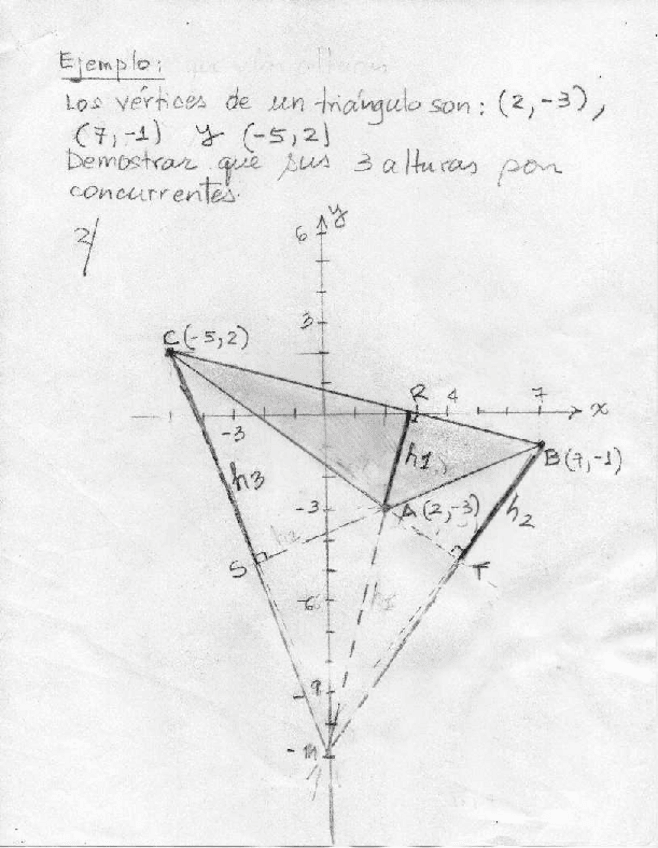 Ejemplo:
Los vértices de un triángulo son: (2,-3),
(7,-1) y (-5,2)
Demostrar que sus 3 alturas son
concurrentes.
2/
y
6
3
C(-5,2)
R 4 7 x
-3
h1
B(7,-1)
h3
-3 A(2,-3) h2
S T
-6
-9